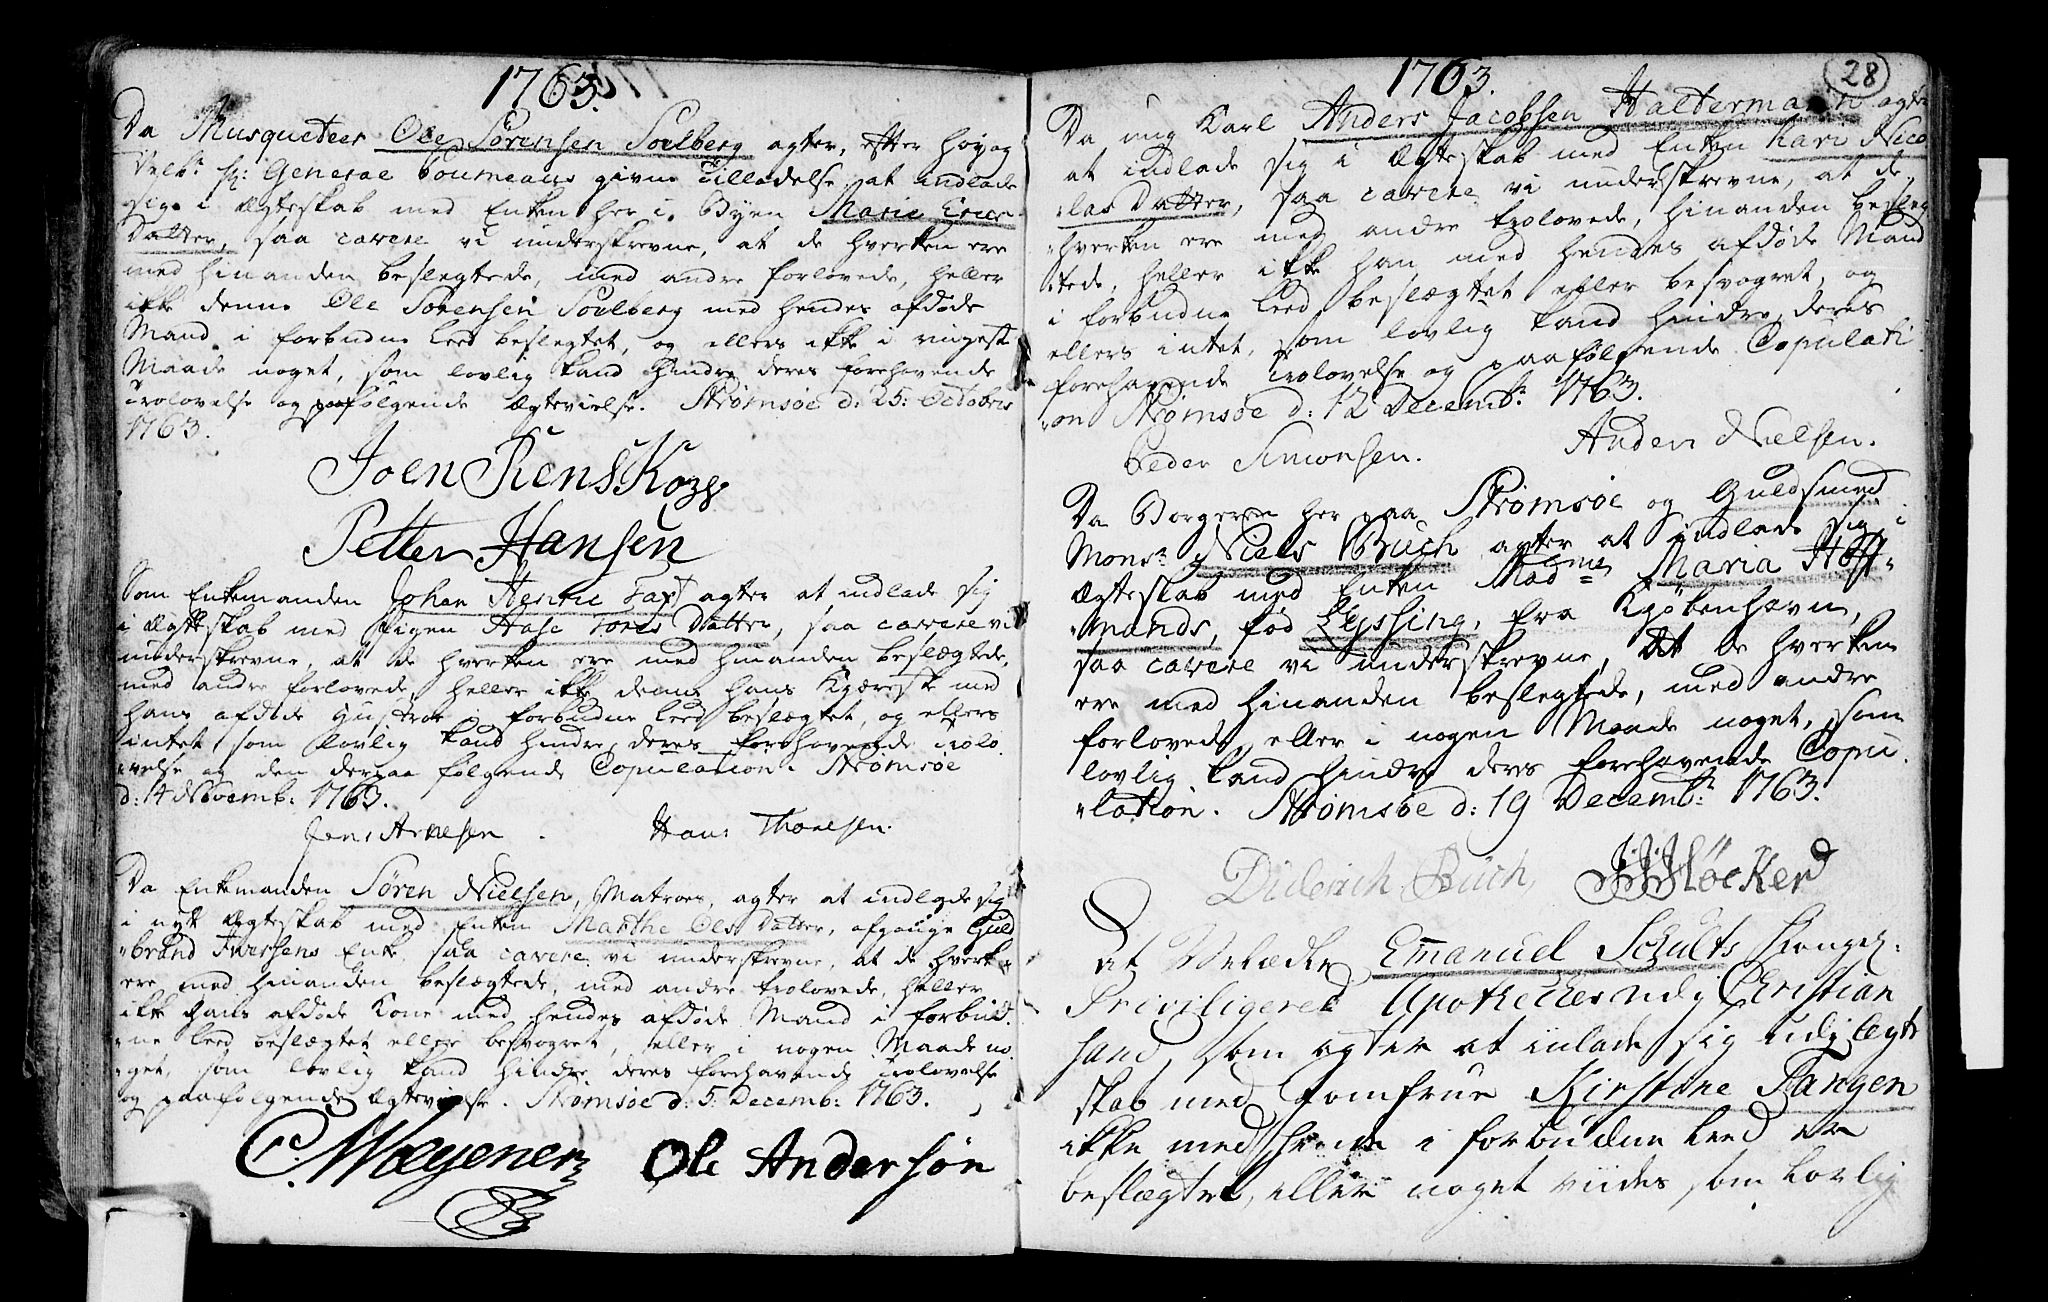 1763.
Da Musqueteer Ole Sørensen Soelberg agter, efter høyæd
Velb: Hr: General foumeaus givne Tilladelse, at indlade
sig i Ægteskab med Enken her i Byen Marie Erics
Datter, saa cavere vi underskrevne, at de hverken ere
med hinanden beslegtede, med andre forlovede, heller
ikke denne Ole Sørensen Soelberg med hendes afdøde
Mand i forbudne leed beslegtet, og ellers ikke i ringeste
Maade noget, som lovlig kand hindre deres forehavende
Trolovelse og paafølgende Ægtevielse. Strømsøe d: 25: Octobris
1763.
Joen Jens
Petter Hansen
Som Enkemanden Johan Henric Taxt agter at indlade sig
i Ægteskab med Pigen Aase Tores Datter, saa cavere vi
underskrevne, at de hverken ere med hinanden beslægtede,
med andre forlovede, heller ikke denne hans Kjæreste med
hans afdøde Hustroe i forbudne leed beslægtet, og ellers
intet som lovlig kand hindre deres forehavende Trolo-
velse og den derpaa følgende Copulation. Strømsøe
d: 14 Novemb: 1763.
Jens Arnesen. Hans Thoresen.
Da Enkemanden Søren Nielsen, Matroes, agter at indlade sig
i nytt Ægteskab med Enken Marthe Ols Datter, afgangne Guld
brand Iversens Enke, saa cavere vi underskrevne, at de hverken
ere med hinanden beslegtede, med andre trolovede, heller
ikke hans afdøde Kone med hendes afdøde Mand i forbud-
ne leed beslægtet eller besvogret, eller i nogen Maade no-
get, som lovlig kand hindre deres forehavende Trolovelse
og paafølgende Ægtevielse. Strømsøe d: 5 Decemb: 1763.
C. Wægener Ole Andersøn
1763.
28
Da ung Karl Anders Jacobsen Haltermann agter
at indlade sig i Ægteskab med Enken Kari Nico
las Datter, saa cavere vi underskrevne, at de
hverken ere med andre trolovede, hinanden besleg
tede, heller ikke han med hendes afdøde Mand
i forbudne leed beslægtet eller besvogret, og
ellers intet, som lovlig kand hindre deres
forehavende Trolovelse og paafølgende Copulati
on Strømsøe d: 12 Decembr: 1763.
Peder Simonsen. Anders Nielsen.
Da Borgeren her paa Strømsøe og Guldsmed
Monsr Niels Buch agter at indlade sig i
Ægteskab med Enken Madme Maria Hoff-
mands, fød Lyssing, fra Kjøbenhavn,
saa cavere vi underskrevne, at de hverken
ere med hinanden beslegtede, med andre
forlovede, eller i nogen Maade noget, som
lovlig kand hindre deres forehavende Copu-
lation. Strømsøe d: 19 Decembr: 1763.
Diderich Buch,
At Velædle Emanuel Schults Kongel:
Priviligered Apothecker udj Christian
sand, som agter at inlade sig udj Ægte
skab med Jomfrue Kirstine Tangen
ikke med hende i forbudene leed er
beslægtet, eller noget viides som Lovlig